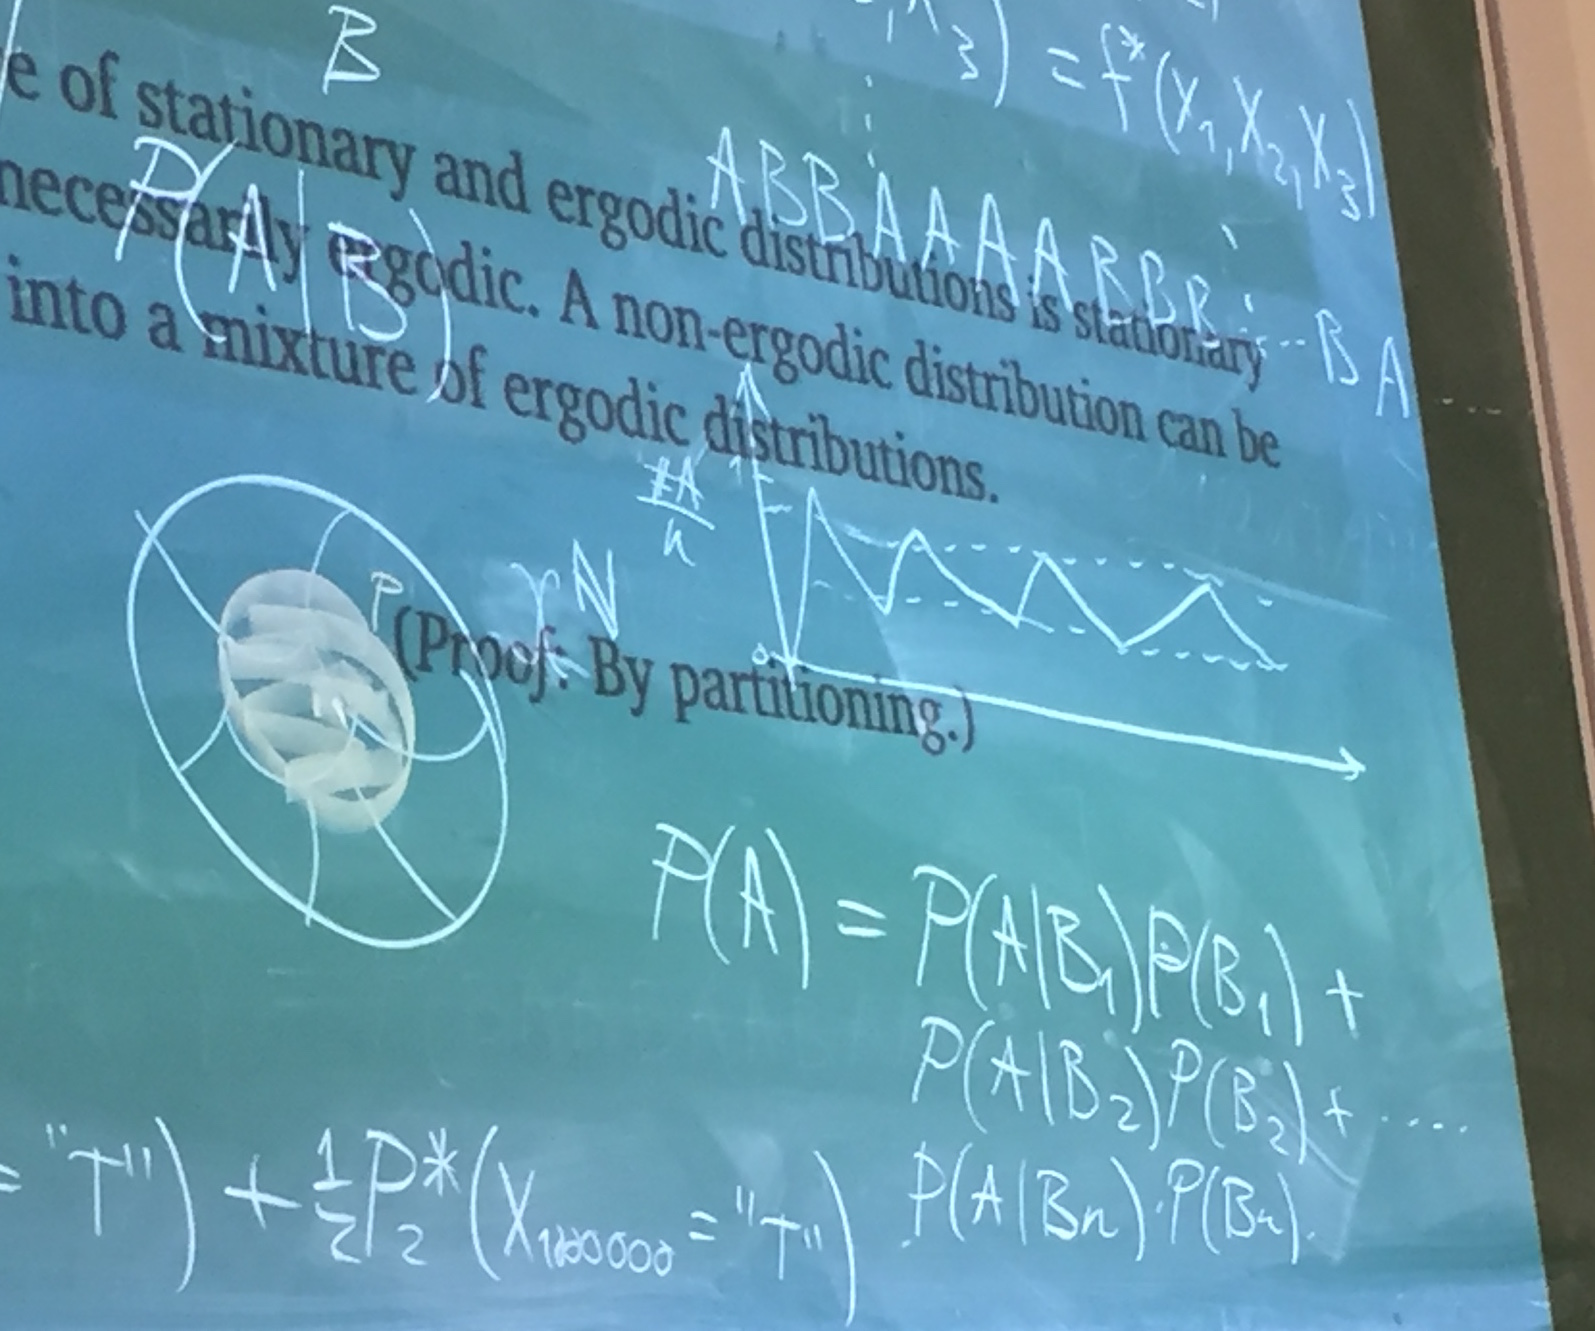 B
3) = f*(X₁, X₂, X₃)
e of stationary and ergodic distributions is stationary
ABBAAAABBB ... BA ....
necessarily ergodic. A non-ergodic distribution can be
P(A|B)
into a mixture of ergodic distributions.
#A/n
1
N
P
(Proof: By partitioning.)
0
P(A) = P(A|B₁)P(B₁) +
P(A|B₂)P(B₂) + ....
P(A|Bn)·P(Bn).
= "T") + 1/2 P*₂(X₁₀₀₀₀₀₀ = "T")